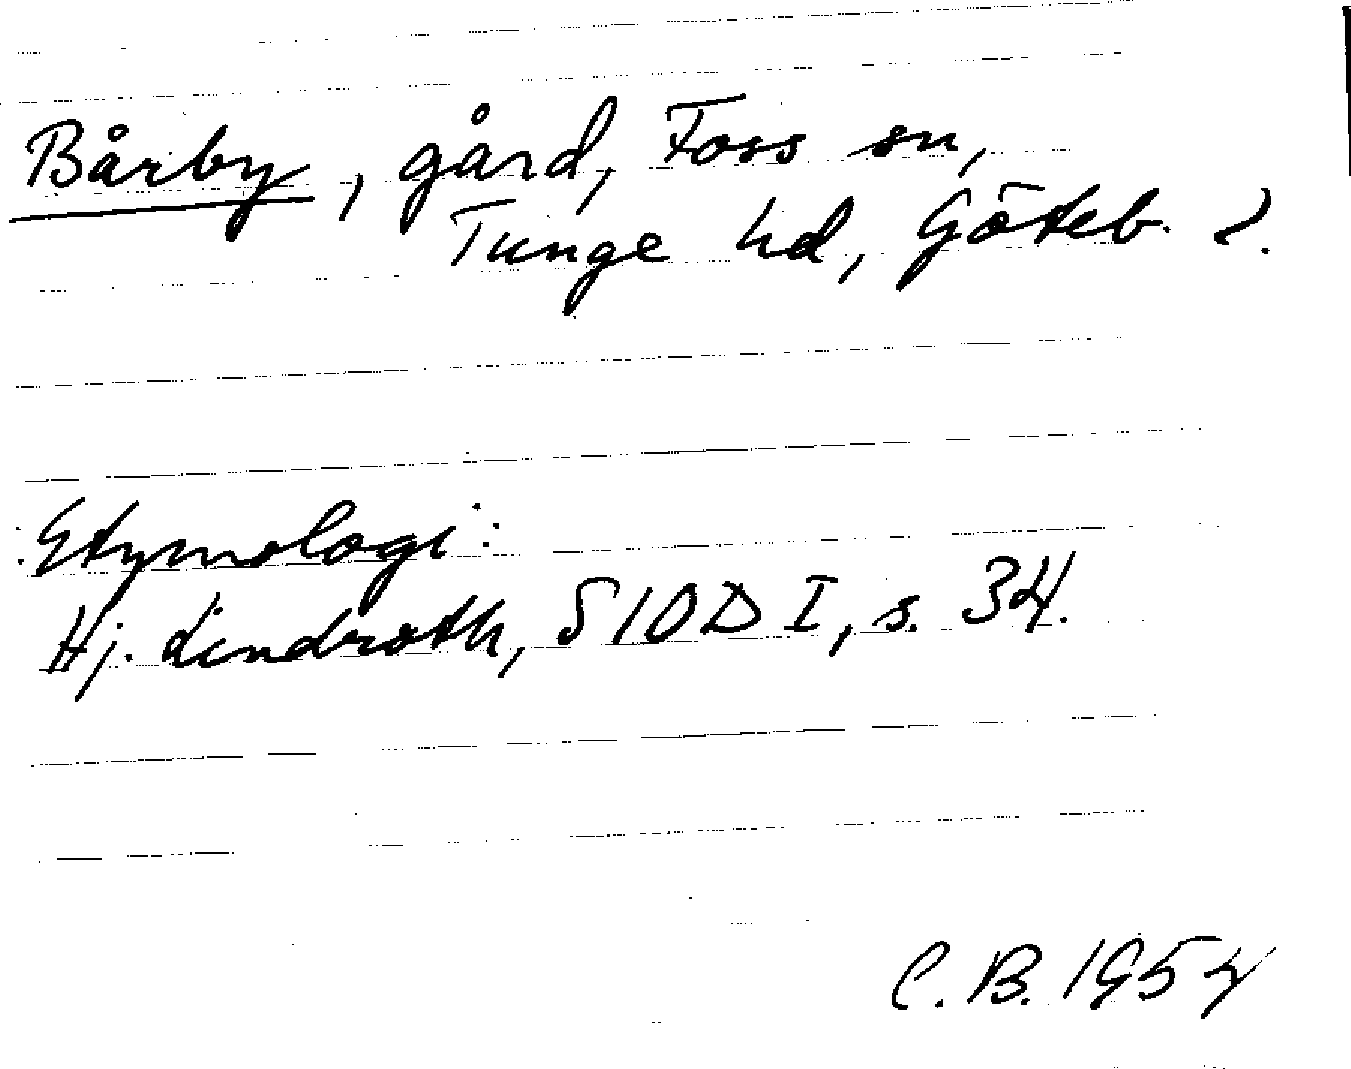 Bårby, gård, Foss sn,
Tunge hd, Göteb. l.
Etymologi:
Hj. Lindroth, SIOD I, s. 34.
C.B. 1954